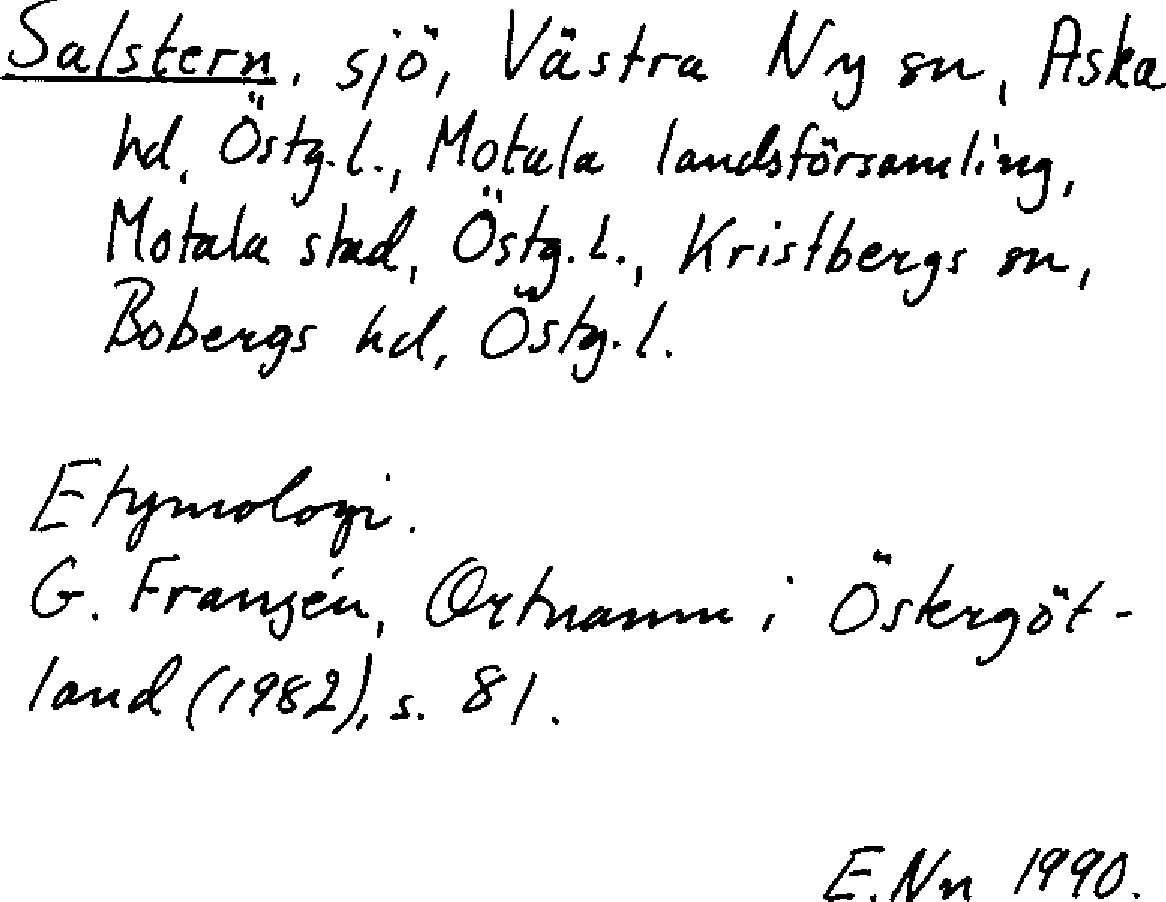 Salstern, sjö, Västra Ny sn, Aska
hd, Östg.l., Motala landsförsamling,
Motala stad, Östg.l., Kristbergs sn,
Bobergs hd, Östg.l.
Etymologi.
G. Franzén, Ortnamn i Östergöt-
land (1982), s. 81.
E.Nn 1990.